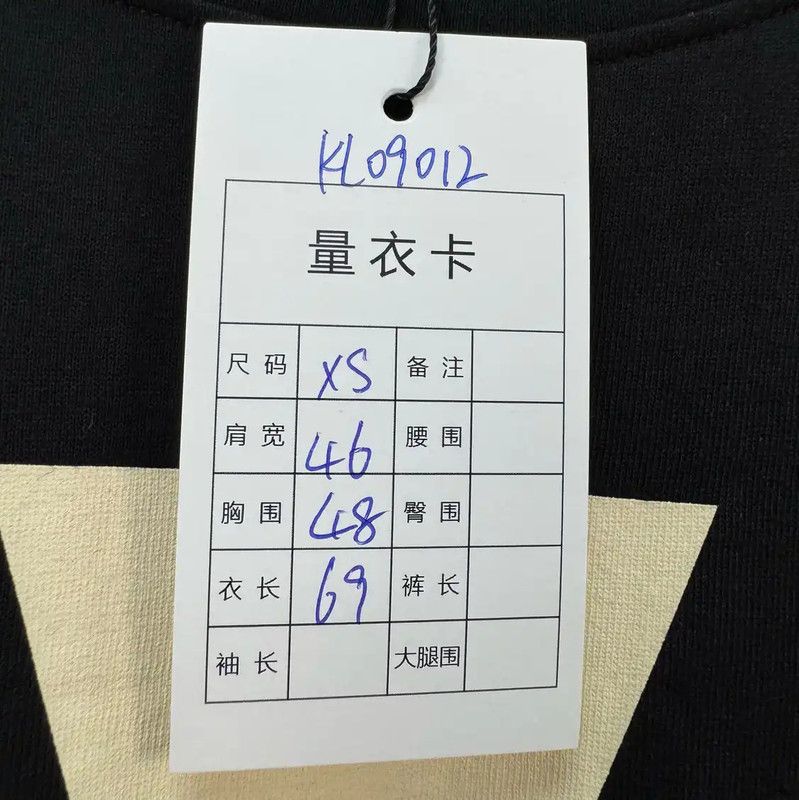 KL09012
量衣卡
尺码 XS 备注
肩宽 46 腰围
胸围 48 臀围
衣长 69 裤长
袖长 大腿围